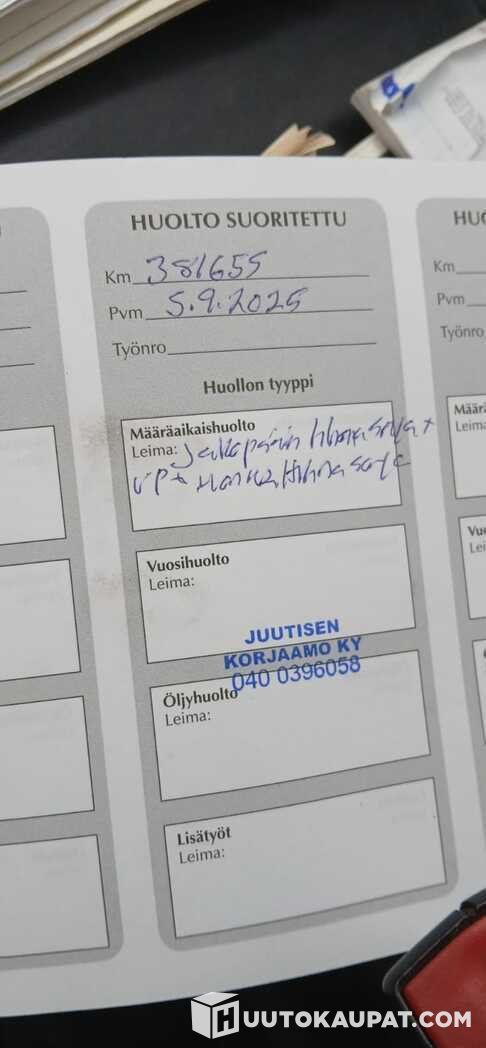 HUOLTO SUORITETTU
Km 381655
Pvm 5.9.2025
Työnro
Huollon tyyppi
Määräaikaishuolto
Leima: Jakopään hihnasarja +
VP + Hihnasarja
Vuosihuolto
Leima:
JUUTISEN
KORJAAMO KY
040 0396058
Öljyhuolto
Leima:
Lisätyöt
Leima:
HUO
Km
Pvm
Työnro
Määrä
Leima
Vuo
Lei
HUUTOKAUPAT.COM